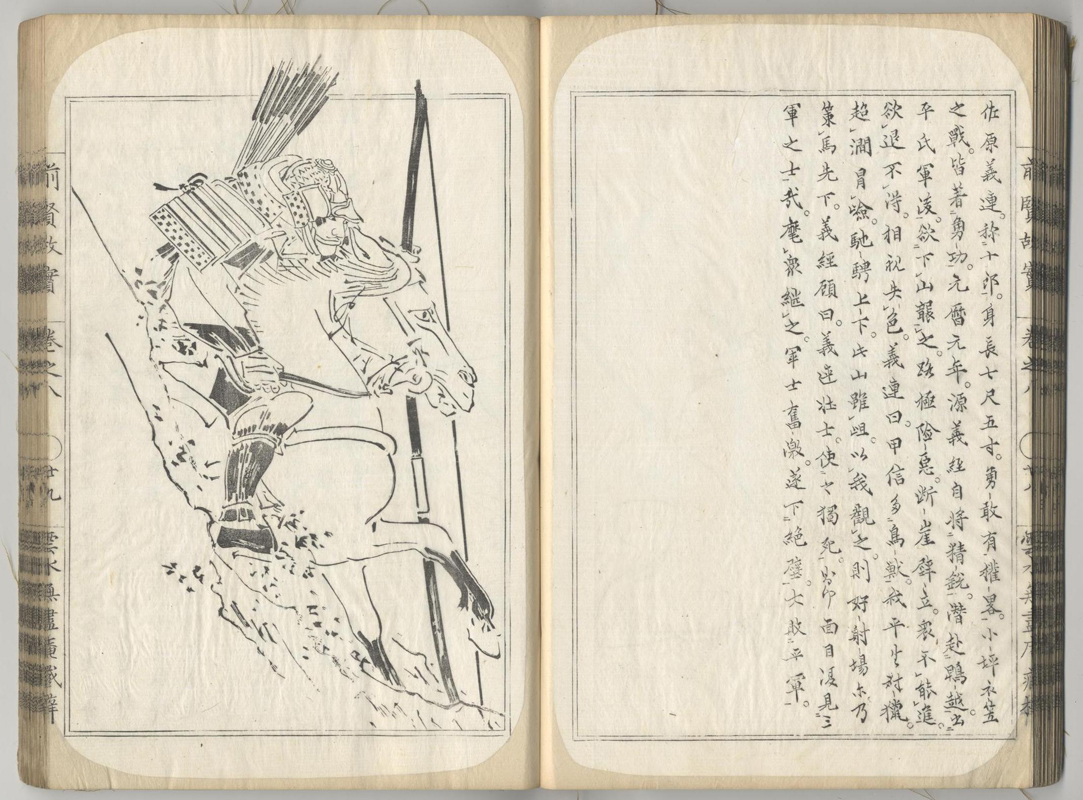 佐原義連。称十郎。身長七尺五寸。勇敢有権畧。小坪衣笠
之戦。皆著勇功。元暦元年。源義経自将精鋭。潜赴鵯越出
平氏軍後。欲下山襲之。路極険悪。断崖壁立。衆不能進。
欲退不得。相視失色。義連曰。甲信多鳥獣。我平生狩猟。
超澗冒嶮。馳騁上下。此山雖岨。以我観之。則好射場尓。乃
策馬先下。義経顧曰。義連壮士。使之独死。吾何面目復見三
軍之士哉。麾衆継之。軍士奮激。遂下絶壁。大敗平軍。
前賢故實 巻之八 廿九 雲水無盡庵蔵梓
前賢故實 巻之八